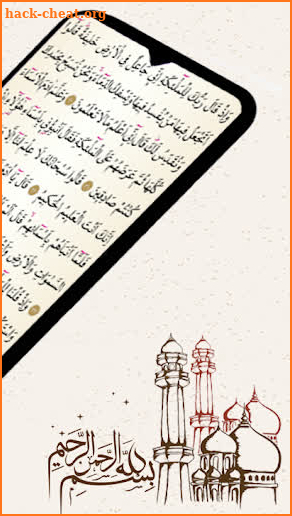 hack-cheat.org
وَإِذْ قَالَ رَبُّكَ لِلْمَلَٰٓئِكَةِ إِنِّى جَاعِلٌ فِى ٱلْأَرْضِ خَلِيفَةً قَالُوٓا۟
أَتَجْعَلُ فِيهَا مَن يُفْسِدُ فِيهَا وَيَسْفِكُ ٱلدِّمَآءَ وَنَحْنُ نُسَبِّحُ بِحَمْدِكَ
وَنُقَدِّسُ لَكَ قَالَ إِنِّىٓ أَعْلَمُ مَا لَا تَعْلَمُونَ ۝ وَعَلَّمَ ءَادَمَ ٱلْأَسْمَآءَ
كُلَّهَا ثُمَّ عَرَضَهُمْ عَلَى ٱلْمَلَٰٓئِكَةِ فَقَالَ أَنۢبِـُٔونِى بِأَسْمَآءِ هَٰٓؤُلَآءِ
كُنتُمْ صَٰدِقِينَ ۝ قَالُوا۟ سُبْحَٰنَكَ لَا عِلْمَ لَنَآ
إِنَّكَ أَنتَ ٱلْعَلِيمُ ٱلْحَكِيمُ ۝ قَالَ
فَلَمَّآ أَنۢبَأَهُم بِأَسْمَآئِهِمْ قَالَ
ٱلسَّمَٰوَٰتِ وَٱلْأَرْضِ
۝ وَإِذْ قُلْنَا
بسم الله الرحمن الرحيم